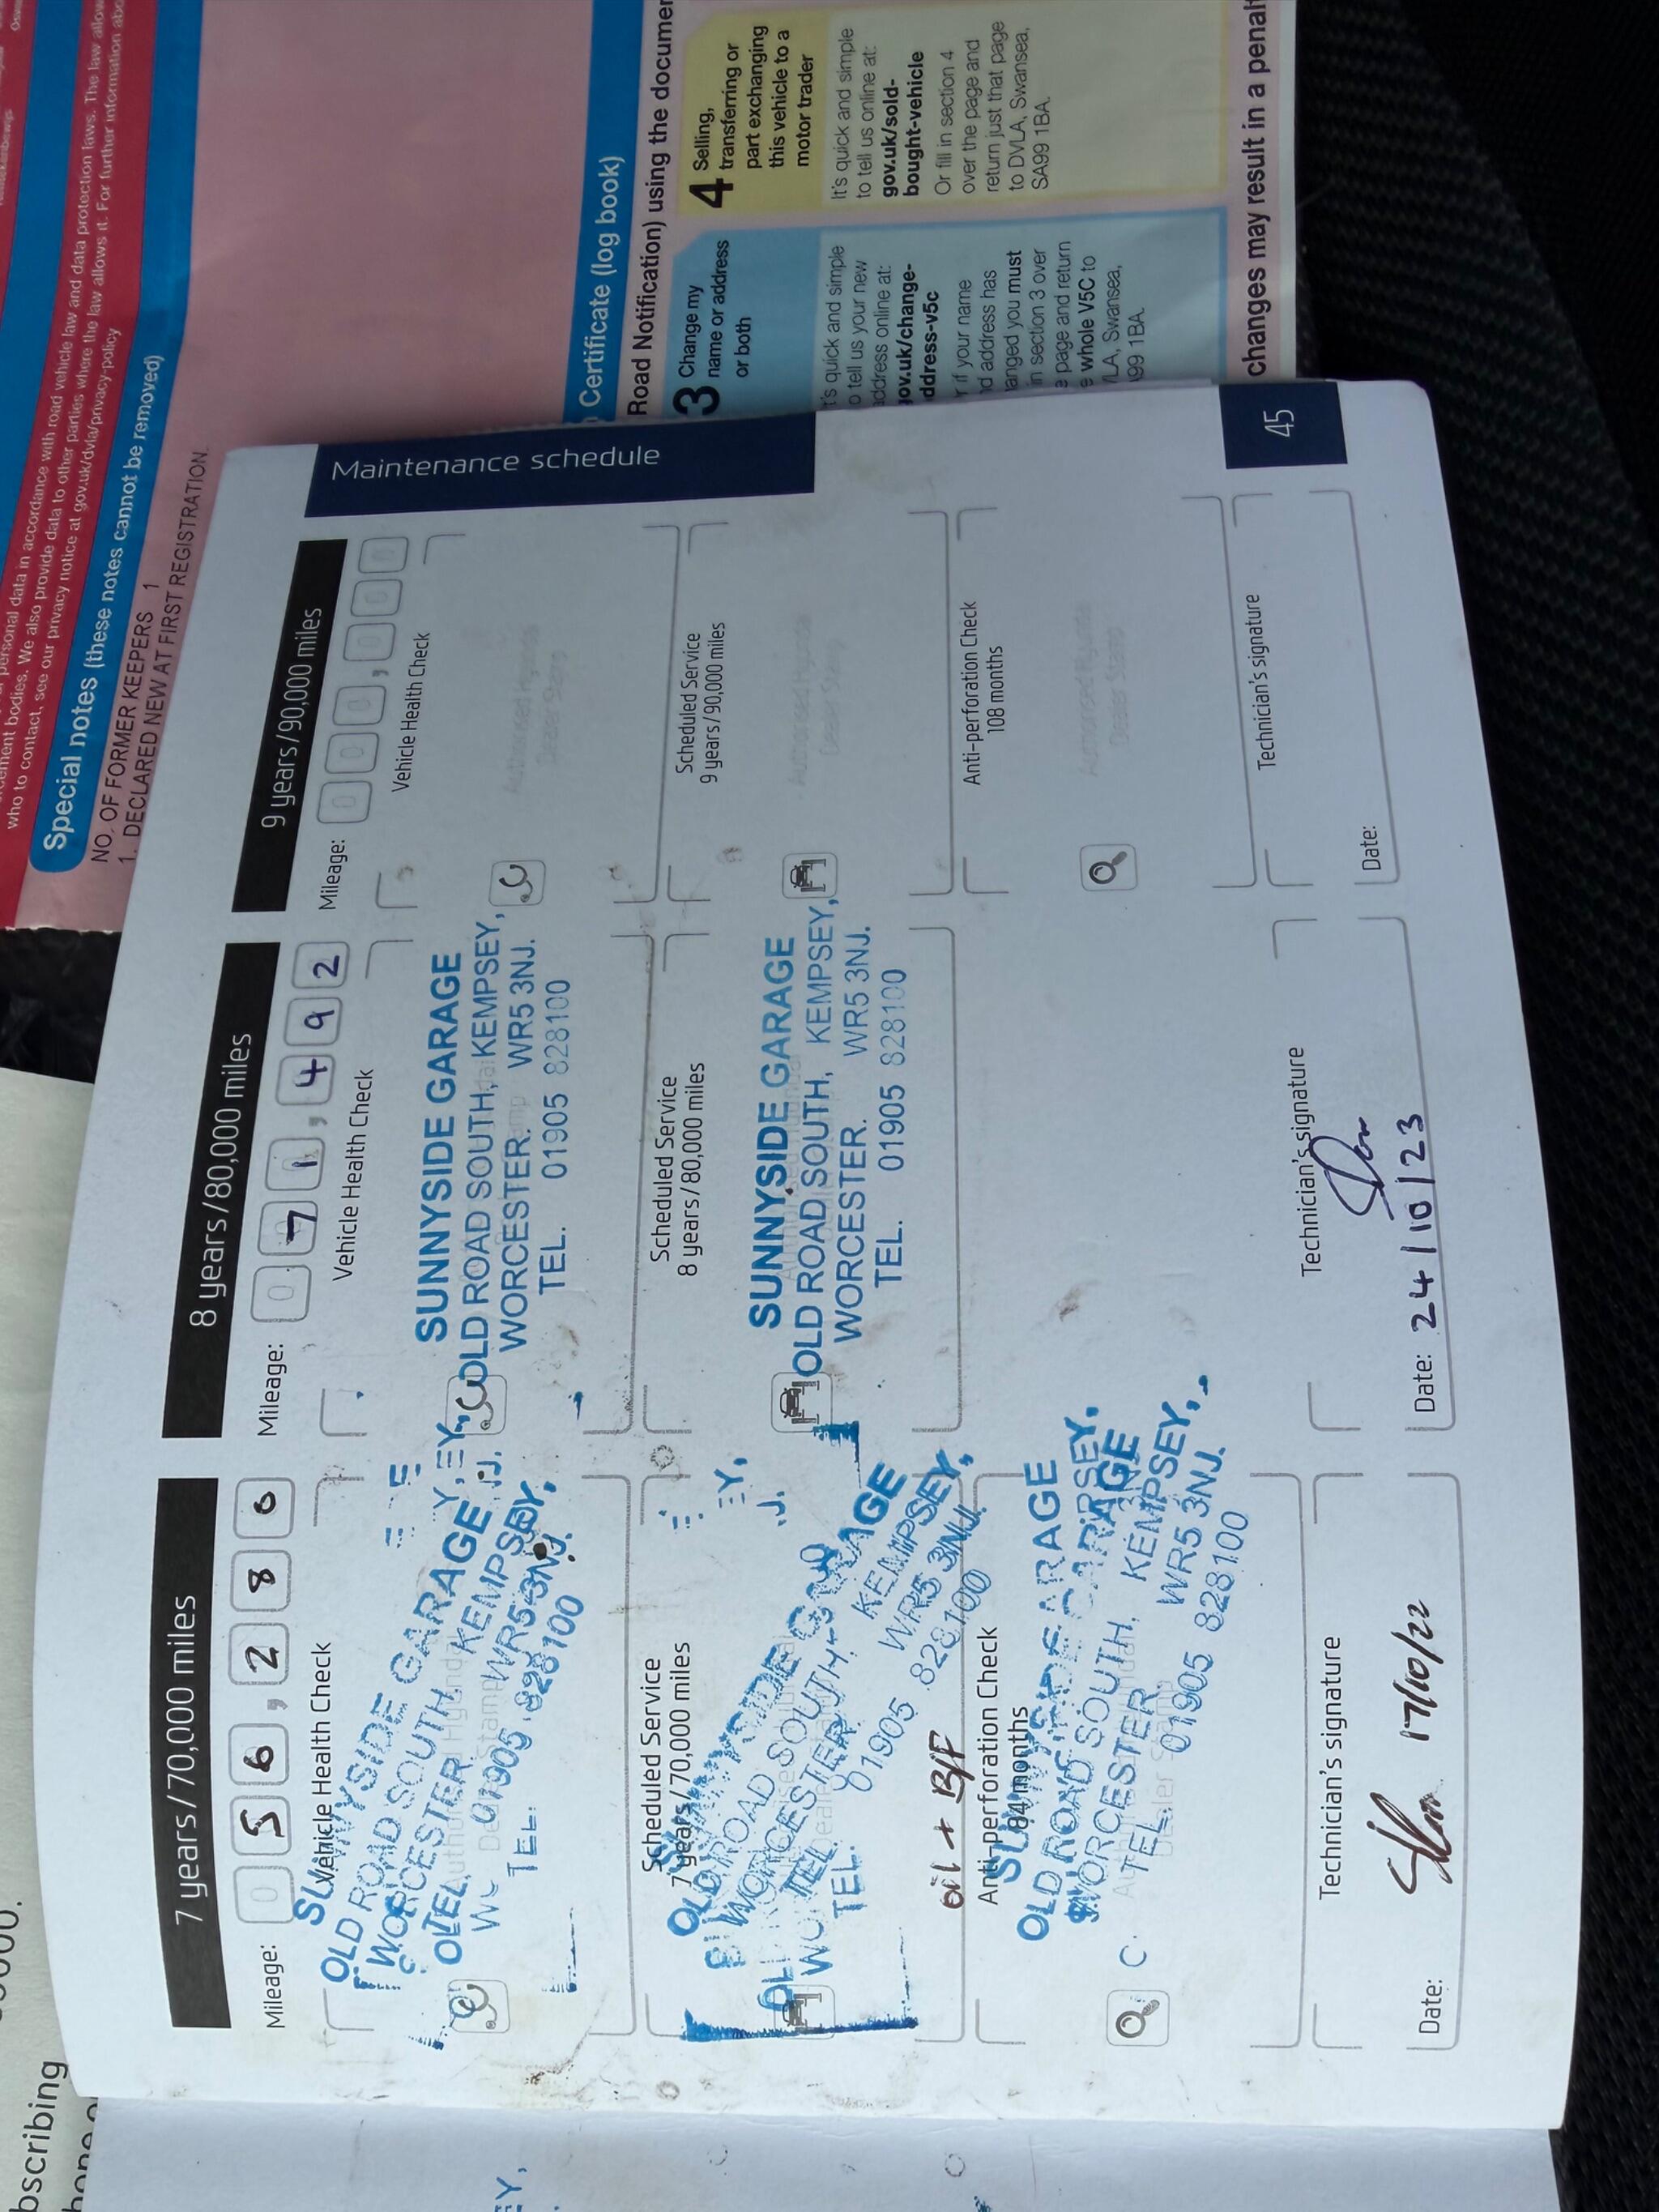 who to contact, see our privacy notice at gov.uk/dvla/privacy-policy
Special notes (these notes cannot be removed)
NO. OF FORMER KEEPERS 1
1. DECLARED NEW AT FIRST REGISTRATION.
Certificate (log book)
Road Notification) using the documen
3 Change my
name or address
or both
t's quick and simple
o tell us your new
address online at:
gov.uk/change-
address-v5c
r if your name
nd address has
anged you must
in section 3 over
e page and return
e whole V5C to
VLA, Swansea,
A99 1BA.
4 Selling,
transferring or
part exchanging
this vehicle to a
motor trader
It's quick and simple
to tell us online at:
gov.uk/sold-
bought-vehicle
Or fill in section 4
over the page and
return just that page
to DVLA, Swansea,
SA99 1BA.
changes may result in a penalt
bscribing
Maintenance schedule
7 years/70,000 miles
Mileage: 0 5 6 , 2 8 6
Vehicle Health Check
SUNNYSIDE GARAGE
OLD ROAD SOUTH, KEMPSEY,
WORCESTER. WR5 3NJ.
TEL. 01905 828100
Scheduled Service
7 years/70,000 miles
SUNNYSIDE GARAGE
OLD ROAD SOUTH, KEMPSEY,
WORCESTER. WR5 3NJ.
TEL. 01905 828100
oil + B/F
Anti-perforation Check
84 months
SUNNYSIDE GARAGE
OLD ROAD SOUTH, KEMPSEY,
WORCESTER. WR5 3NJ.
TEL. 01905 828100
Technician's signature
Date: 17/10/22
8 years/80,000 miles
Mileage: 0 7 1 , 4 9 2
Vehicle Health Check
SUNNYSIDE GARAGE
OLD ROAD SOUTH, KEMPSEY,
WORCESTER. WR5 3NJ.
TEL. 01905 828100
Scheduled Service
8 years/80,000 miles
SUNNYSIDE GARAGE
OLD ROAD SOUTH, KEMPSEY,
WORCESTER. WR5 3NJ.
TEL. 01905 828100
Technician's signature
Date: 24/10/23
9 years/90,000 miles
Mileage: 0 0 0 , 0 0 0
Vehicle Health Check
Authorised Hyundai
Dealer Stamp
Scheduled Service
9 years/90,000 miles
Authorised Hyundai
Dealer Stamp
Anti-perforation Check
108 months
Authorised Hyundai
Dealer Stamp
Technician's signature
Date:
45